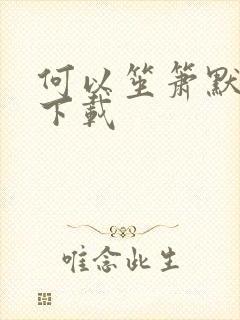 何以笙箫默
下载
唯念此生